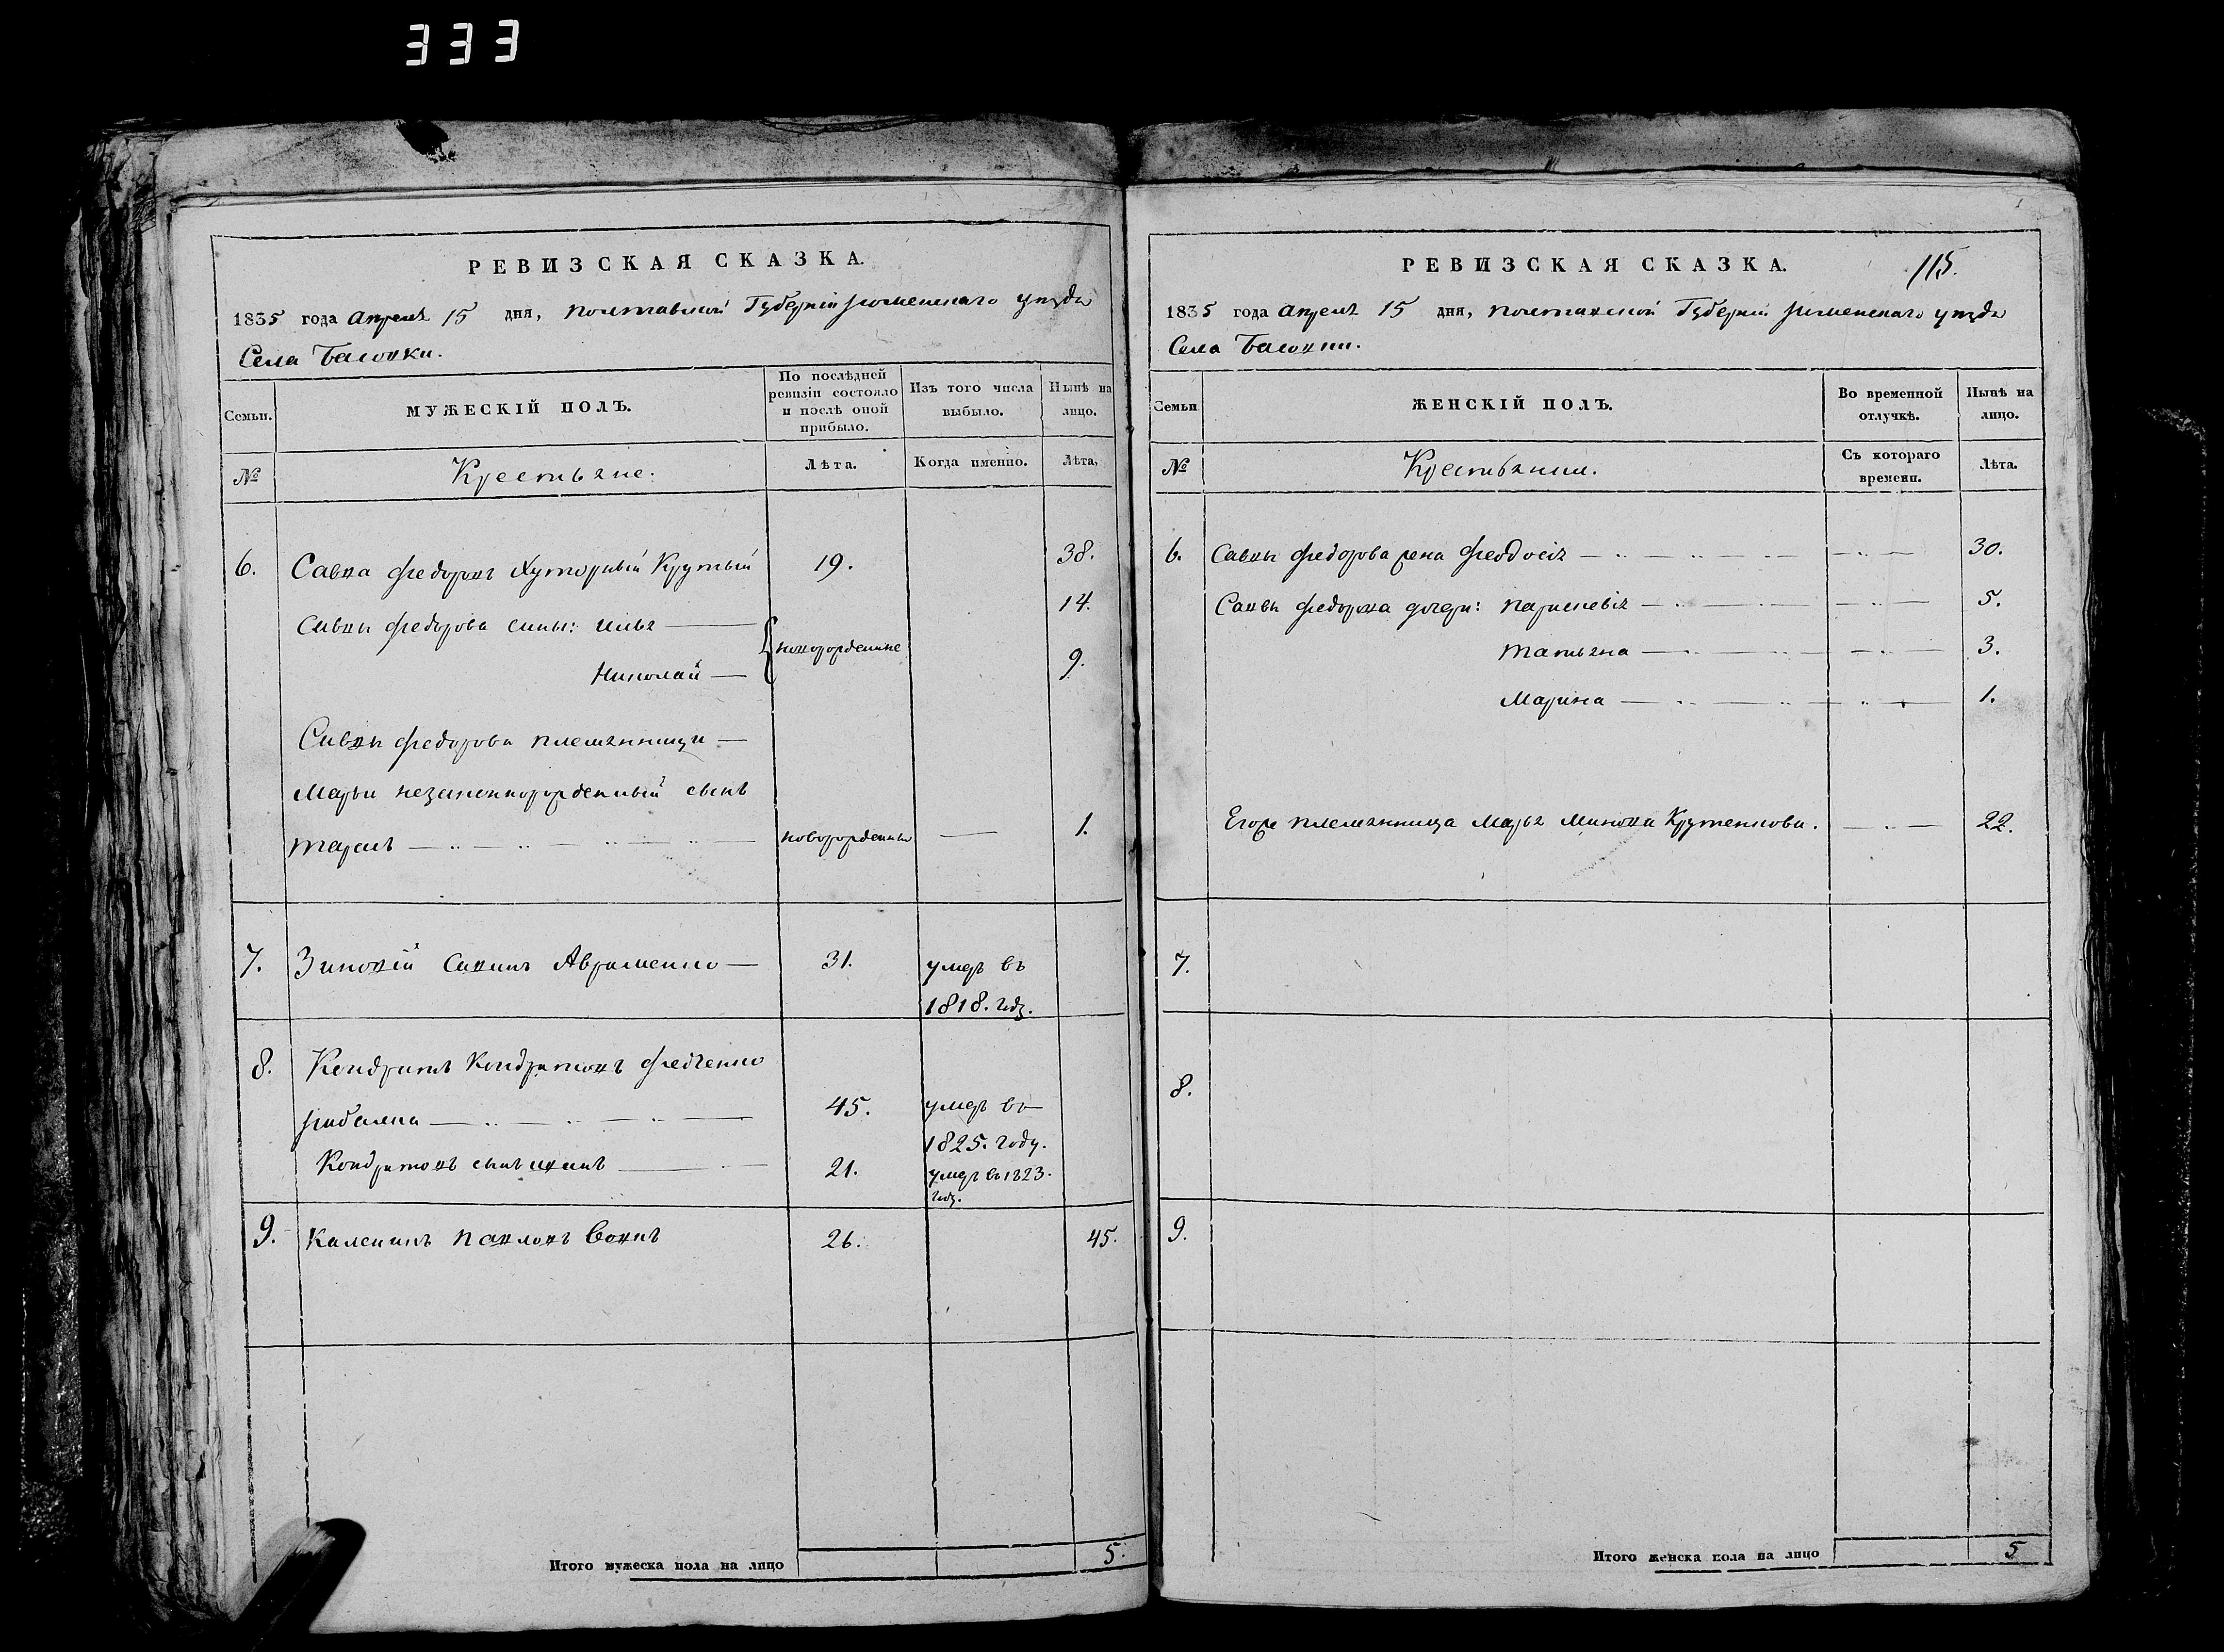 333
РЕВИЗСКАЯ СКАЗКА.
1835 года Апреля 15 дня, Полтавской Губерніи Роменскаго уѣзда
Села Басовки.
Семьи.
МУЖЕСКІЙ ПОЛЪ.
По послѣдней ревизіи состояло и послѣ оной прибыло.
Изъ того числа выбыло.
Нынѣ на лицо.
№
Крестьяне.
Лѣта.
Когда именно.
Лѣта,
6. Савка Федоровъ Хуторный Крутый 19. 38.
Савки Федорова сыны: Илья 14.
новорожденные
Николай 9.
Савки Федорова племянници
Марьи незаконнорожденный сынъ
Тарасъ новорожденный 1.
7. Зиновій Савинъ Авраменко 31. умеръ въ
1818. году.
8. Кондратъ Кондратовъ Федченко
Рибалка 45. умеръ въ
1825. году.
Кондратовъ сынъ 21. умеръ въ 1823.
году.
9. Каленикъ Павловъ Вовкъ 26. 45.
Итого мужеска пола на лицо 5.
РЕВИЗСКАЯ СКАЗКА. 115.
1835 года Апреля 15 дня, Полтавской Губерніи Роменскаго уѣзда
Села Басовки.
Семьи
ЖЕНСКІЙ ПОЛЪ.
Во временной отлучкѣ.
Нынѣ на лицо.
№
Крестьянки.
Съ котораго времени.
Лѣта.
6. Савки Федорова жена Феодосія 30.
Савки Федорова дочери: Параскевія 5.
Татьяна 3.
Марина 1.
Егоже племянница Марья Минова Крутенкова. 22.
7.
8.
9.
Итого женска пола на лицо 5